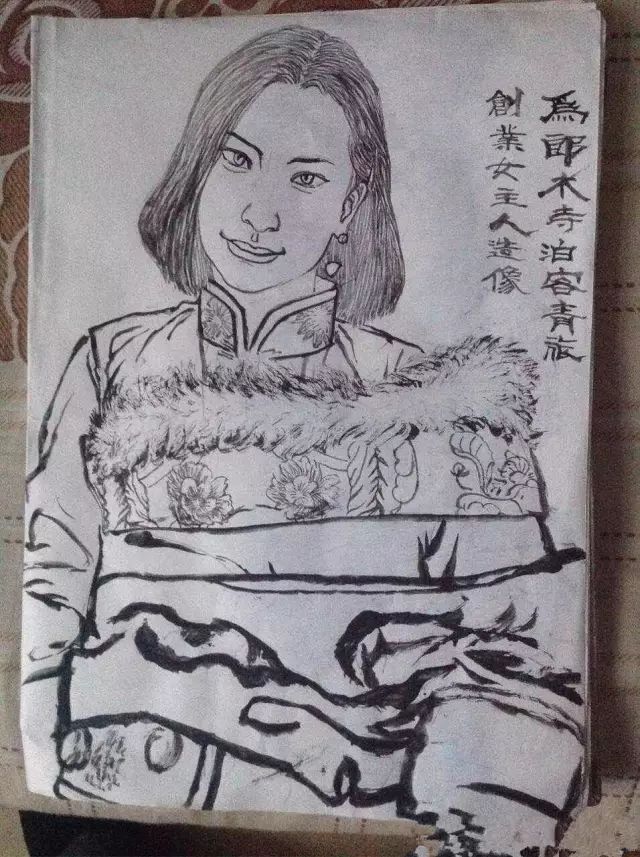 為郎木寺泊客青旅
創業女主人造像